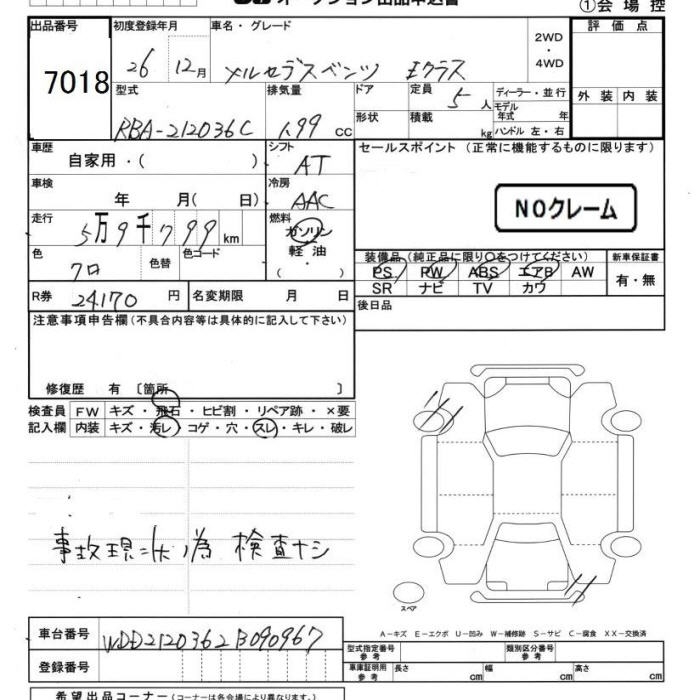 オークション出品申込書
①会場控
出品番号 7018
初度登録年月 26 12月
車名・グレード メルセデスベンツ Eクラス
2WD・4WD
評価点
外装 内装
型式 RBA-212036C
排気量 1.99 cc
ドア
形状
定員 5人
積載 kg
ディーラー・並行
モデル年式 年
ハンドル 左・右
車歴 自家用・( )
シフト AT
セールスポイント (正常に機能するものに限ります)
車検 年 月( 日)
冷房 AAC
NOクレーム
走行 5万9千799km
燃料 ガソリン 軽油 ( ・ )
色 クロ
色替
色コード
装備品(純正品に限り〇をつけてください)
新車保証書
PS PW ABS エアB AW
SR ナビ TV カワ
有・無
R券 24170 円
名変期限 月 日
後日品
注意事項申告欄(不具合内容等は具体的に記入して下さい)
修復歴 有 〔箇所 〕
検査員記入欄
FW キズ・飛石・ヒビ割・リペア跡・×要
内装 キズ・汚レ・コゲ・穴・スレ・キレ・破レ
事故現状ノ為 検査ナシ
スペア
A－キズ E－エクボ U－凹み W－補修跡 S－サビ C－腐食 XX－交換済
車台番号 WDD2120362B090967
登録番号
型式指定番号 参考
類別区分番号 参考
車庫証明用 参考 長さ cm 幅 cm 高さ cm
希望出品コーナー(コーナーは各会場により異なります)